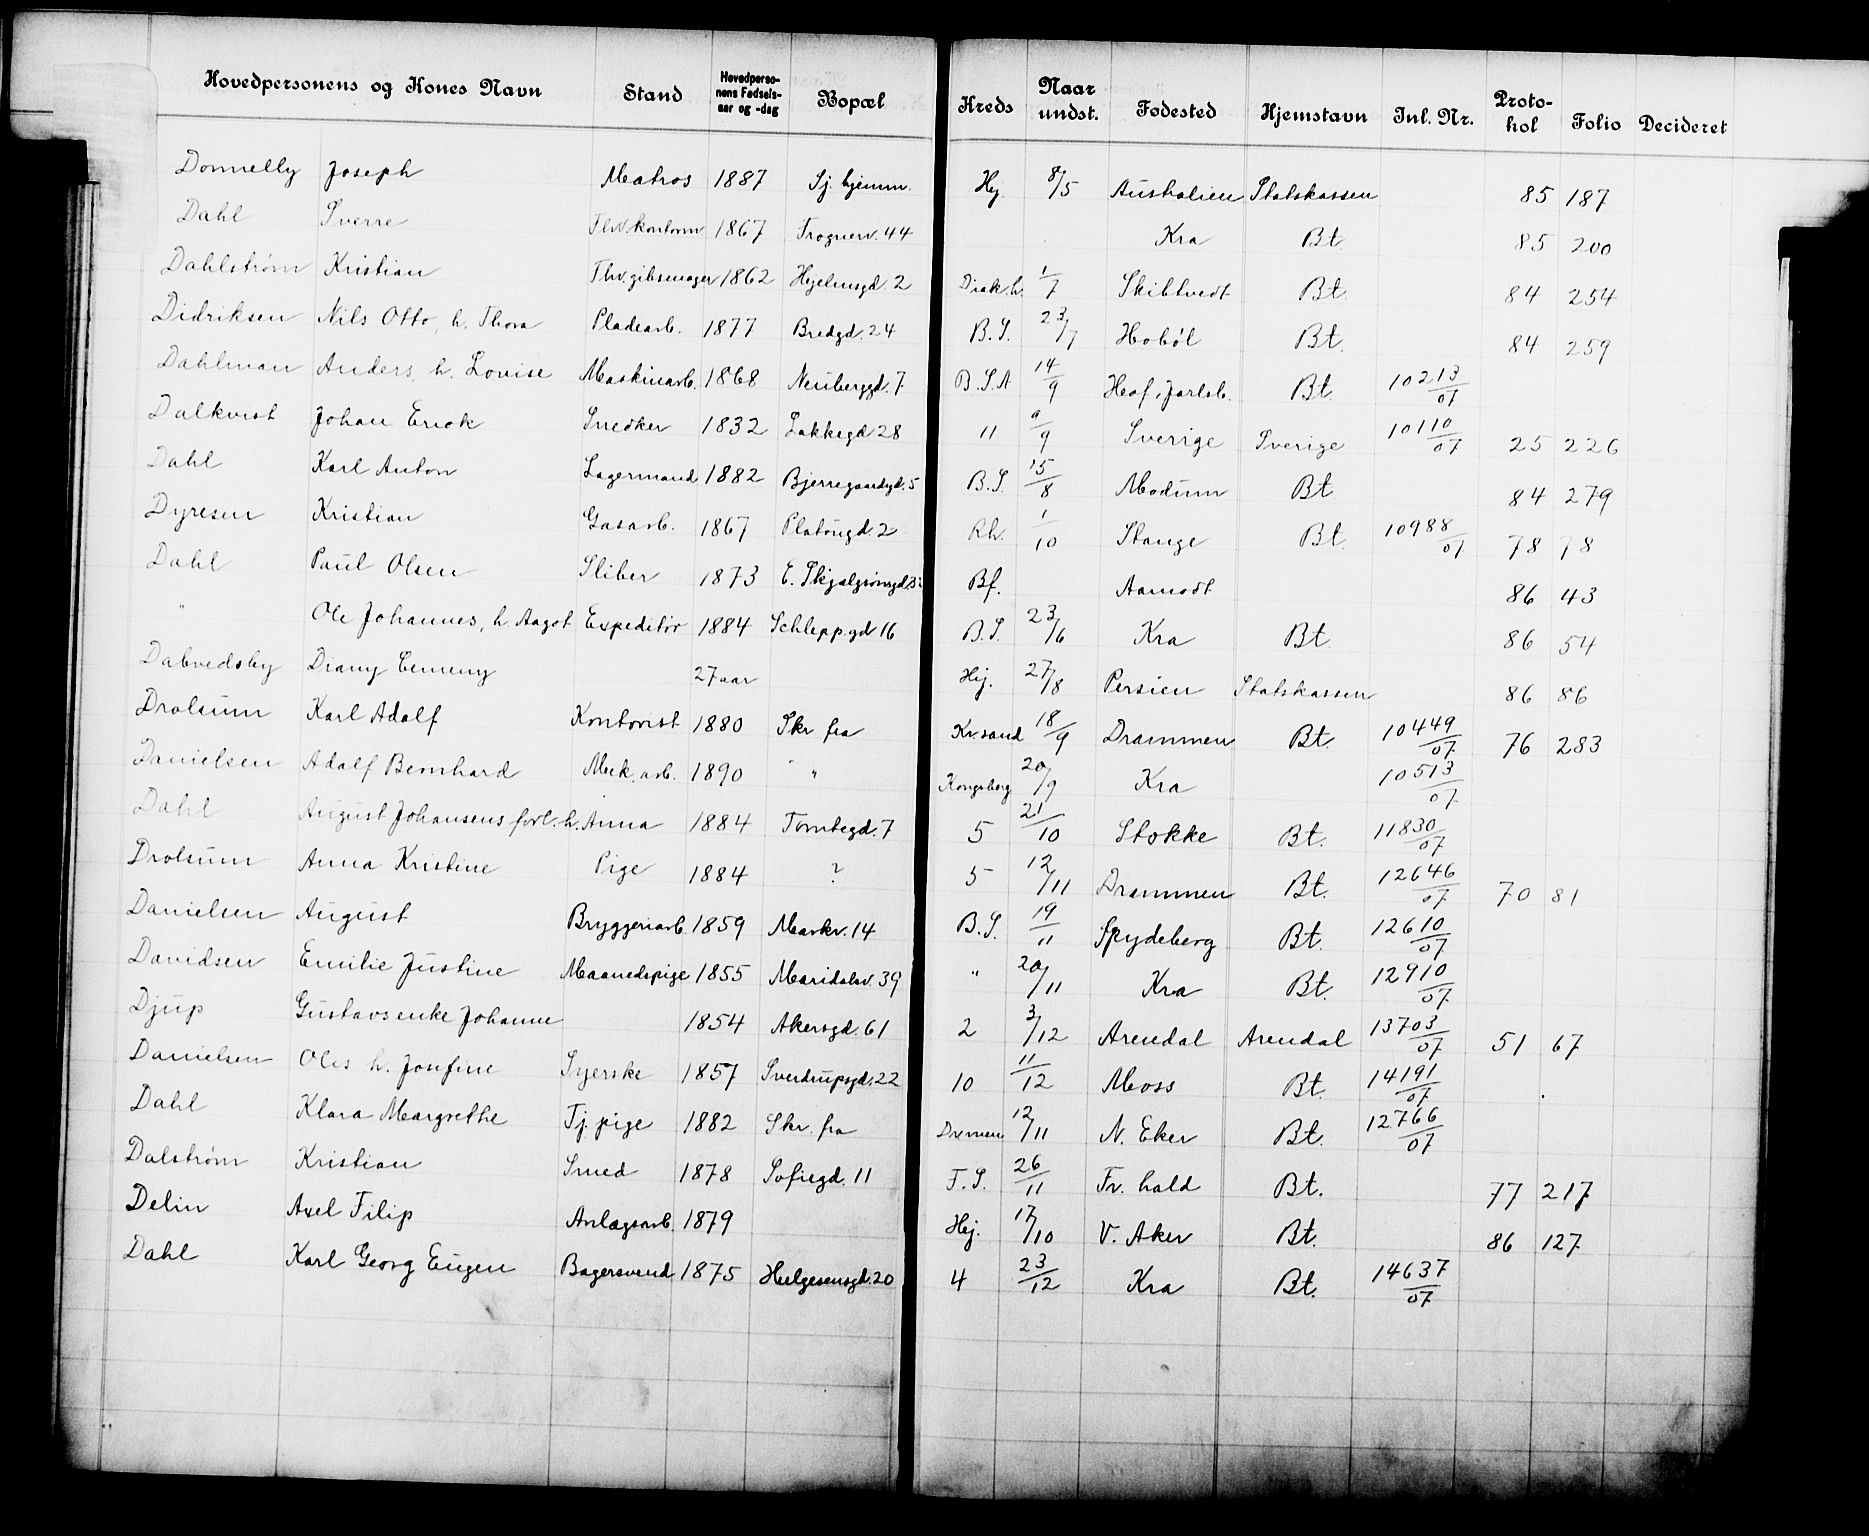 Hovedpersonens og Kones Navn Stand Hovedpersonens Fødselsaar og -dag Bopæl Kreds Naar undst. Fødested Hjemstavn Inl. Nr. Protokol Folio Decideret
Donnelly Joseph Matros 1887 Sj. hjemm. Hj. 8/5 Australien Statskassen 85 187
Dahl Sverre Fhv. kontorm. 1867 Frognerv. 44 Kra Bt. 85 200
Dahlstrøm Kristian Fhv. gibsmager 1862 Hjelmsgd. 2 Diak. h. 1/7 Skibtvedt Bt. 84 254
Didriksen Nils Otto, h. Thora Pladearb. 1877 Bredgd. 24 B.S. 23/7 Hobøl Bt. 84 259
Dahlman Anders, h. Lovise Maskinarb. 1868 Neuberggd. 7 B.S.A 14/9 Hof, Jarlsb. Bt. 10213/07
Dalkvist Johan Erick Snedker 1832 Lakkegd 28 11 9/9 Sverige Sverige 10110/07 25 226
Dahl Karl Anton Lagermand 1882 Bjerregaardgd. 5 B.S. 15/8 Modum Bt 84 279
Dyresen Kristian Gasarb. 1867 Platougd. 2 Rh. 1/10 Stange Bt 10988/07 78 78
Dahl Paul Olsen Sliber 1873 E. Skjalgsønsgd. Bf. Aamodt 86 43
" Ole Johannes, h. Aagot Expeditør 1884 Schlepp.gd 16 B.S. 23/6 Kra Bt. 86 54
Diany 27 aar Hj. 27/8 Persien Statskassen 86 86
Drolsum Karl Adolf Kontorist 1880 Skr. fra Kr.sand 18/9 Drammen Bt. 10449/07 76 283
Danielsen Adolf Bernhard Mek. arb. 1890 " " Kongsberg 20/9 Kra 10513/07
Dahl August Johansens forl. h. Anna 1884 Tomtegd. 7 5 21/10 Stokke Bt. 11830/07
Drolsum Anna Kristine Pige 1884 ? 5 12/11 Drammen Bt. 12646/07 70 81
Danielsen August Bryggeriarb. 1859 Markv. 14 B.S. 19/11 Spydeberg Bt. 12610/07
Davidsen Emilie Justine Maanedspige 1855 Maridalsv. 39 " 20/11 Kra Bt. 12910/07
Djup Gustavs enke Johanne 1854 Akersgd. 61 2 3/12 Arendal Arendal 13703/07 51 67
Danielsen Oles h. Josefine Syerske 1857 Sverdrupsgd. 22 10 11/12 Moss Bt. 14191/07
Dahl Klara Margrethe Tj. pige 1882 Skr. fra Drmmen 12/11 N. Eker Bt. 12766/07
Dalstrøm Kristian Smed 1878 Sofiegd. 11 F.S. 26/11 Fr. hald Bt. 77 217
Delin Axel Filip Anlægsarb. 1879 Hej. 17/10 V. Aker Bt. 86 127
Dahl Karl Georg Eugen Bagersvend 1875 Helgesensgd. 20 4 23/12 Kra Bt. 14637/07